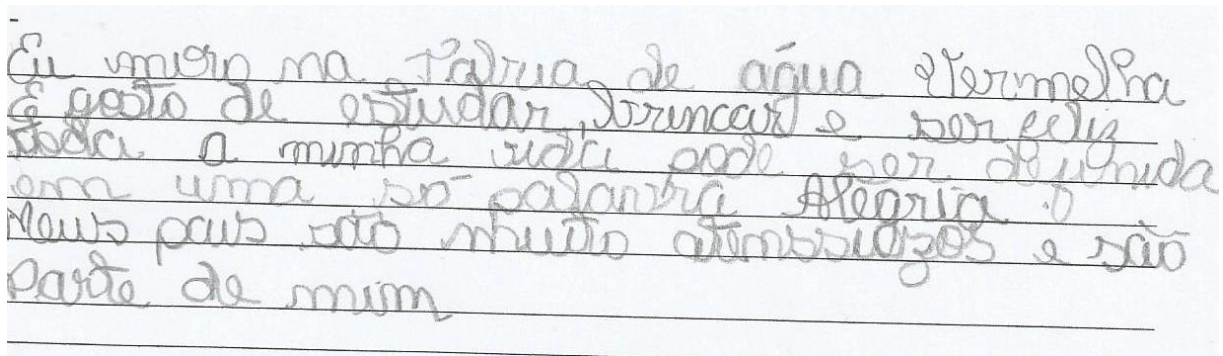 Eu moro na de água Vermelha
E gosto de estudar, brincar e ser feliz
toda a minha vida pode ser definida
em uma só palavra Alegria.
Meus pais são muito atenssiozos e são
Parte de mim